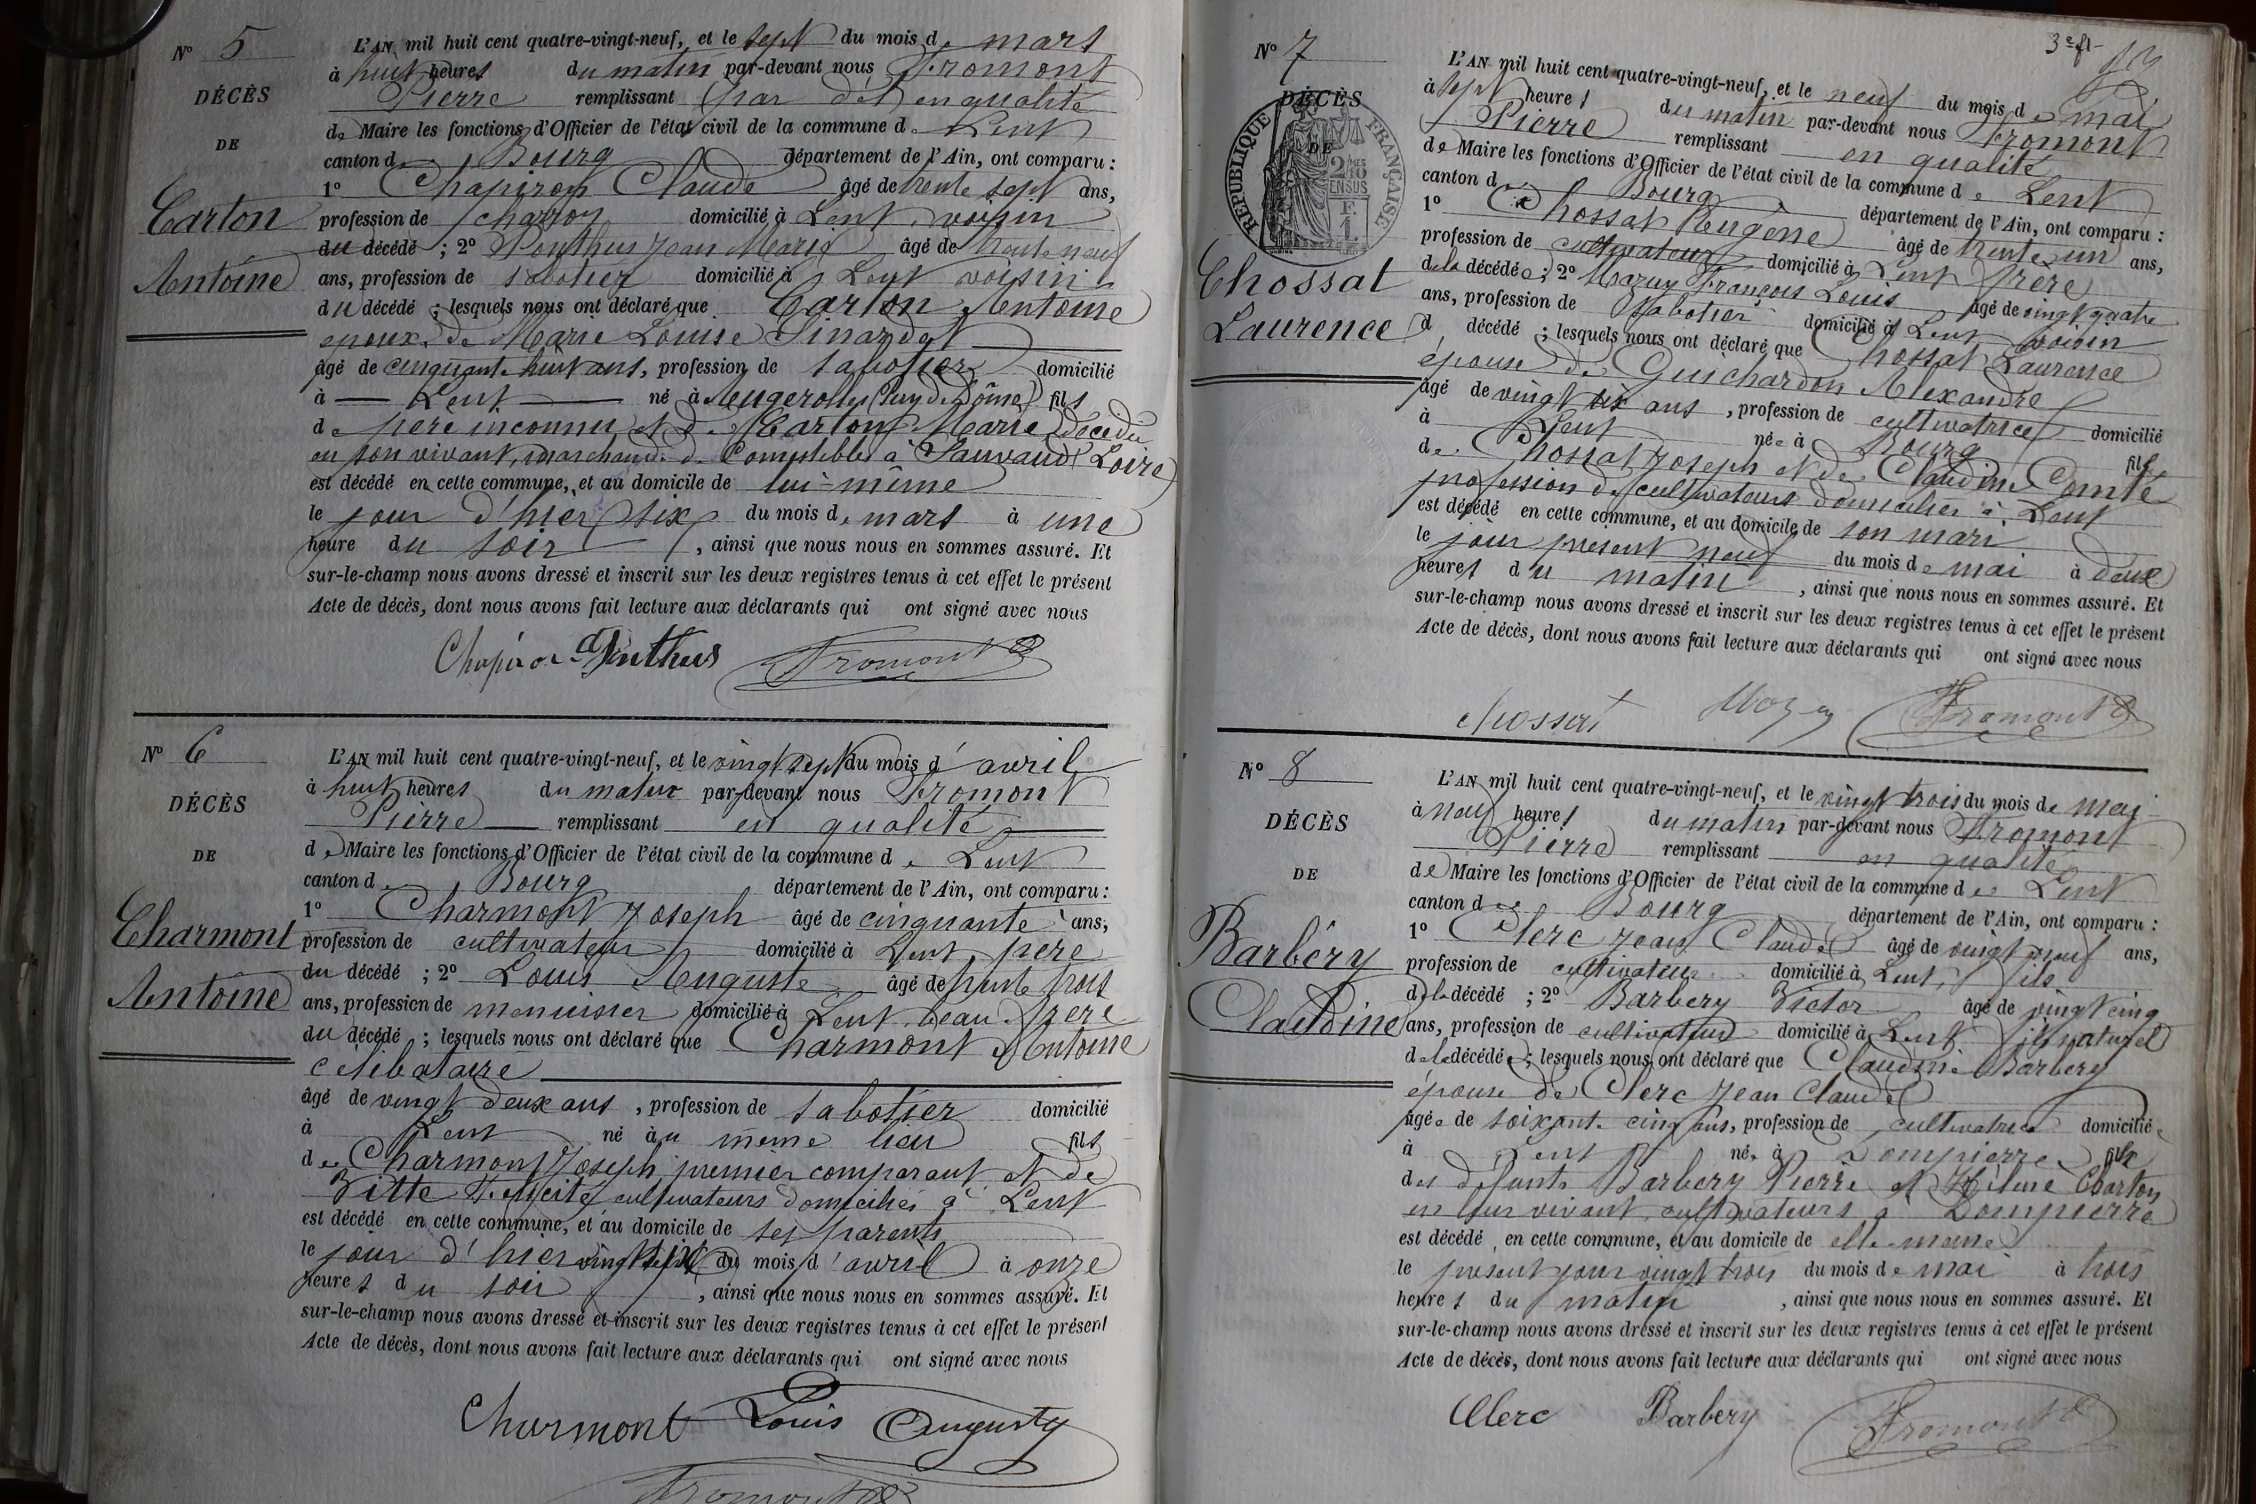 N° 5
DÉCÈS
DE
Carton
Antoine
L'AN mil huit cent quatre-vingt-neuf, et le sept du mois de mars
à huit heures du matin par-devant nous Fromont
Pierre remplissant par dél en qualité
de Maire les fonctions d'Officier de l'état civil de la commune de Lent
canton de Bourg département de l'Ain, ont comparu :
1° Chapiron Claude âgé de trente sept ans,
profession de charron domicilié à Lent, voisin
du décédé ; 2° Ponthus Jean Marie âgé de trente neuf
ans, profession de sabotier domicilié à Lent voisin
du décédé ; lesquels nous ont déclaré que Carton Antoine
époux de Marie Louise Sinardet
âgé de cinquante huit ans, profession de sabotier domicilié
à Lent né à Augerolles (Puy de Dôme) fils
de père inconnu et de Carton Marie décédée
en son vivant, marchande de Comestibles à Sauvaud (Loire)
est décédé en cette commune, et au domicile de lui-même
le jour d'hier six du mois de mars à une
heure du soir , ainsi que nous nous en sommes assuré. Et
sur-le-champ nous avons dressé et inscrit sur les deux registres tenus à cet effet le présent
Acte de décès, dont nous avons fait lecture aux déclarants qui ont signé avec nous
Chapiron Ponthus Fromont
N° 6
DÉCÈS
DE
Charmont
Antoine
L'AN mil huit cent quatre-vingt-neuf, et le vingt sept du mois d'avril
à huit heures du matin par-devant nous Fromont
Pierre remplissant en qualité
de Maire les fonctions d'Officier de l'état civil de la commune de Lent
canton de Bourg département de l'Ain, ont comparu :
1° Charmont Joseph âgé de cinquante ans,
profession de cultivateur domicilié à Lent, père
du décédé ; 2° Louis Auguste âgé de trente trois
ans, profession de menuisier domicilié à Lent, beau frère
du décédé ; lesquels nous ont déclaré que Charmont Antoine
célibataire
âgé de vingt deux ans , profession de sabotier domicilié
à Lent né au même lieu fils
de Charmont Joseph premier comparant et de
Vitte Félicité cultivateurs domiciliés à Lent
est décédé en cette commune, et au domicile de ses parents
le jour d'hier vingt six du mois d'avril à onze
heures du soir , ainsi que nous nous en sommes assuré. Et
sur-le-champ nous avons dressé et inscrit sur les deux registres tenus à cet effet le présent
Acte de décès, dont nous avons fait lecture aux déclarants qui ont signé avec nous
Charmont Louis Auguste
Fromont
3e f.
N° 7
DÉCÈS
DE
RÉPUBLIQUE FRANÇAISE
Chossat
Laurence
L'AN mil huit cent quatre-vingt-neuf, et le neuf du mois de mai
à sept heures du matin par-devant nous Fromont
Pierre remplissant en qualité
de Maire les fonctions d'Officier de l'état civil de la commune de Lent
canton de Bourg département de l'Ain, ont comparu :
1° Chossat Eugène âgé de trente un ans,
profession de cultivateur domicilié à Lent frère
de la décédée ; 2° Mazuy François Louis âgé de vingt quatre
ans, profession de sabotier domicilié à Lent voisin
d décédé ; lesquels nous ont déclaré que Chossat Laurence
épouse de Guichardon Alexandre
âgé de vingt six ans , profession de cultivatrice domicilié
à Lent née à Bourg fille
de Chossat Joseph et de Claudine Comte
profession de cultivateurs domiciliés à Lent
est décédé en cette commune, et au domicile de son mari
le jour présent neuf du mois de mai à deux
heures du matin , ainsi que nous nous en sommes assuré. Et
sur-le-champ nous avons dressé et inscrit sur les deux registres tenus à cet effet le présent
Acte de décès, dont nous avons fait lecture aux déclarants qui ont signé avec nous
Chossat Mazuy Fromont
N° 8
DÉCÈS
DE
Barbéry
Claudine
L'AN mil huit cent quatre-vingt-neuf, et le vingt trois du mois de mai
à neuf heures du matin par-devant nous Fromont
Pierre remplissant en qualité
de Maire les fonctions d'Officier de l'état civil de la commune de Lent
canton de Bourg département de l'Ain, ont comparu :
1° Clerc Jean Claude âgé de vingt neuf ans,
profession de cultivateur domicilié à Lent, fils
de la décédé ; 2° Barbery Victor âgé de vingt cinq
ans, profession de cultivateur domicilié à Lent fils naturel
de la décédée ; lesquels nous ont déclaré que Claudine Barbery
épouse de Clerc Jean Claude
âgée de soixante cinq ans, profession de cultivatrice domiciliée
à Lent née à Dompierre fille
des défunts Barbery Pierre et Hélène Charton
en leur vivant cultivateurs à Dompierre
est décédé en cette commune, et au domicile de elle-même
le présent jour vingt trois du mois de mai à trois
heures du matin , ainsi que nous nous en sommes assuré. Et
sur-le-champ nous avons dressé et inscrit sur les deux registres tenus à cet effet le présent
Acte de décès, dont nous avons fait lecture aux déclarants qui ont signé avec nous
Clerc Barbery Fromont